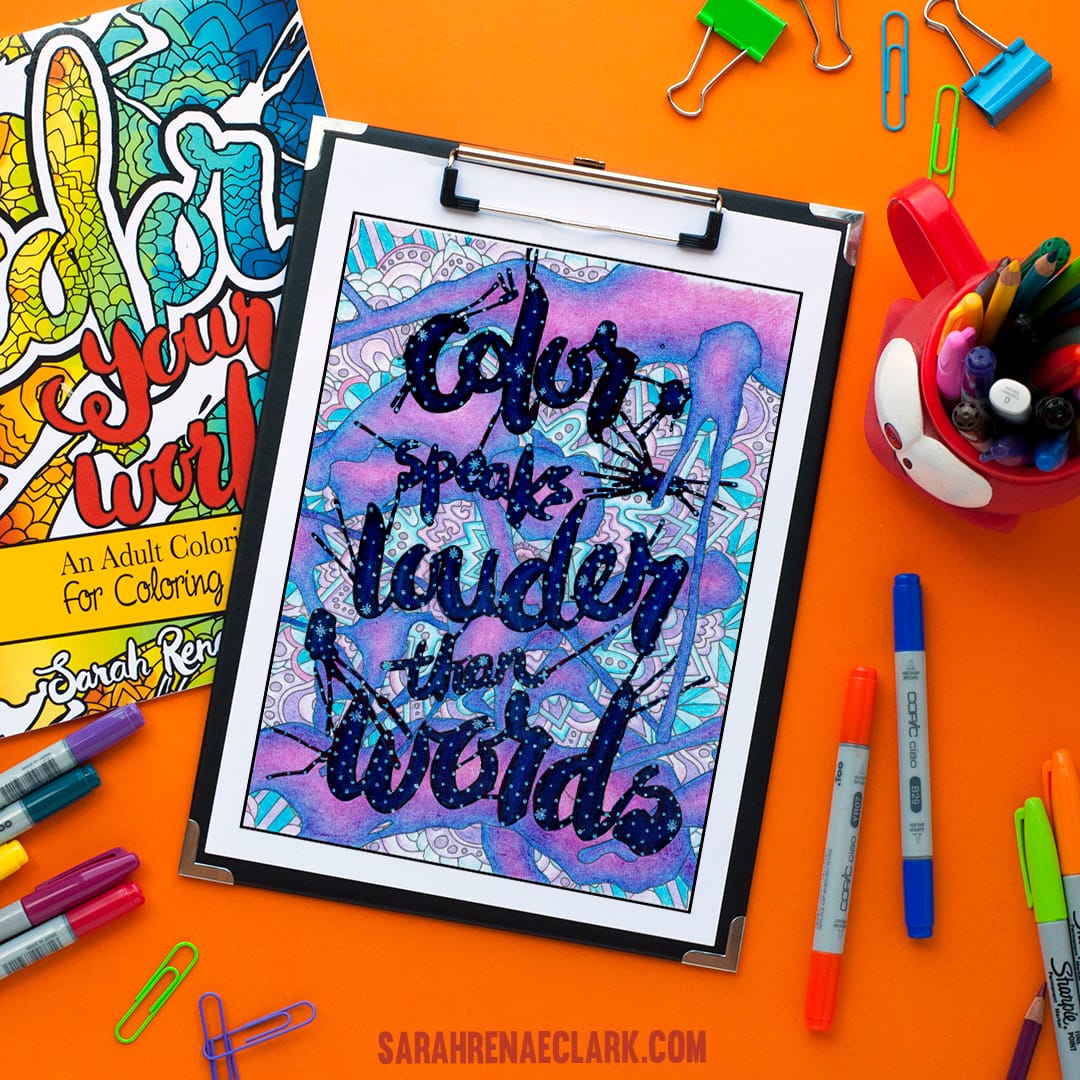 olor
your
worl
An Adult Colori
For Coloring
Sarah Ren
Color
speaks
louder
than
words
COPIC ciao B29
COPIC ciao YR07
Sharpie
SARAHRENAECLARK.COM